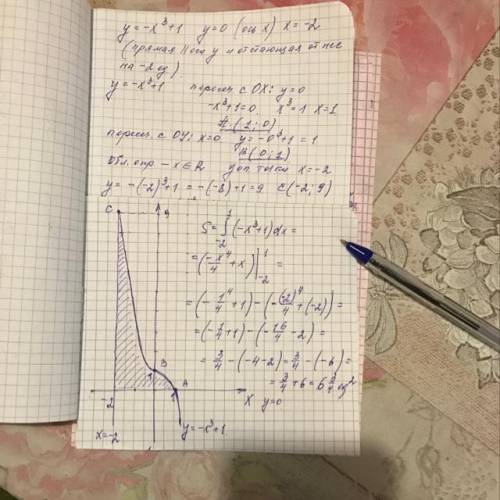 y = -x³+1   y=0 (ось x) x = -2
(прямая || оси y и отстоящая от нее
на -2 ед)
y = -x³+1   пересеч. с OX: y=0
-x³+1=0   x³=1 x=1
A (1; 0)
пересеч. с OY: x=0   y=-0³+1 = 1
B (0; 1)
Обл. опр. - x∈R   доп точки x=-2
y = -(-2)³+1 = -(-8)+1=9   C(-2; 9)
C 9
S = ∫₋₂¹ (-x³+1)dx =
= (-x⁴/4 + x) |₋₂¹ =
= (-1⁴/4 + 1) - (-(-2)⁴/4 + (-2)) =
= (-1/4 + 1) - (-16/4 - 2) =
= 3/4 - (-4-2) = 3/4 - (-6) =
= 3/4 + 6 = 6 3/4 ед²
B
1
1 A
-2
X y=0
x=-2
y=-x³+1